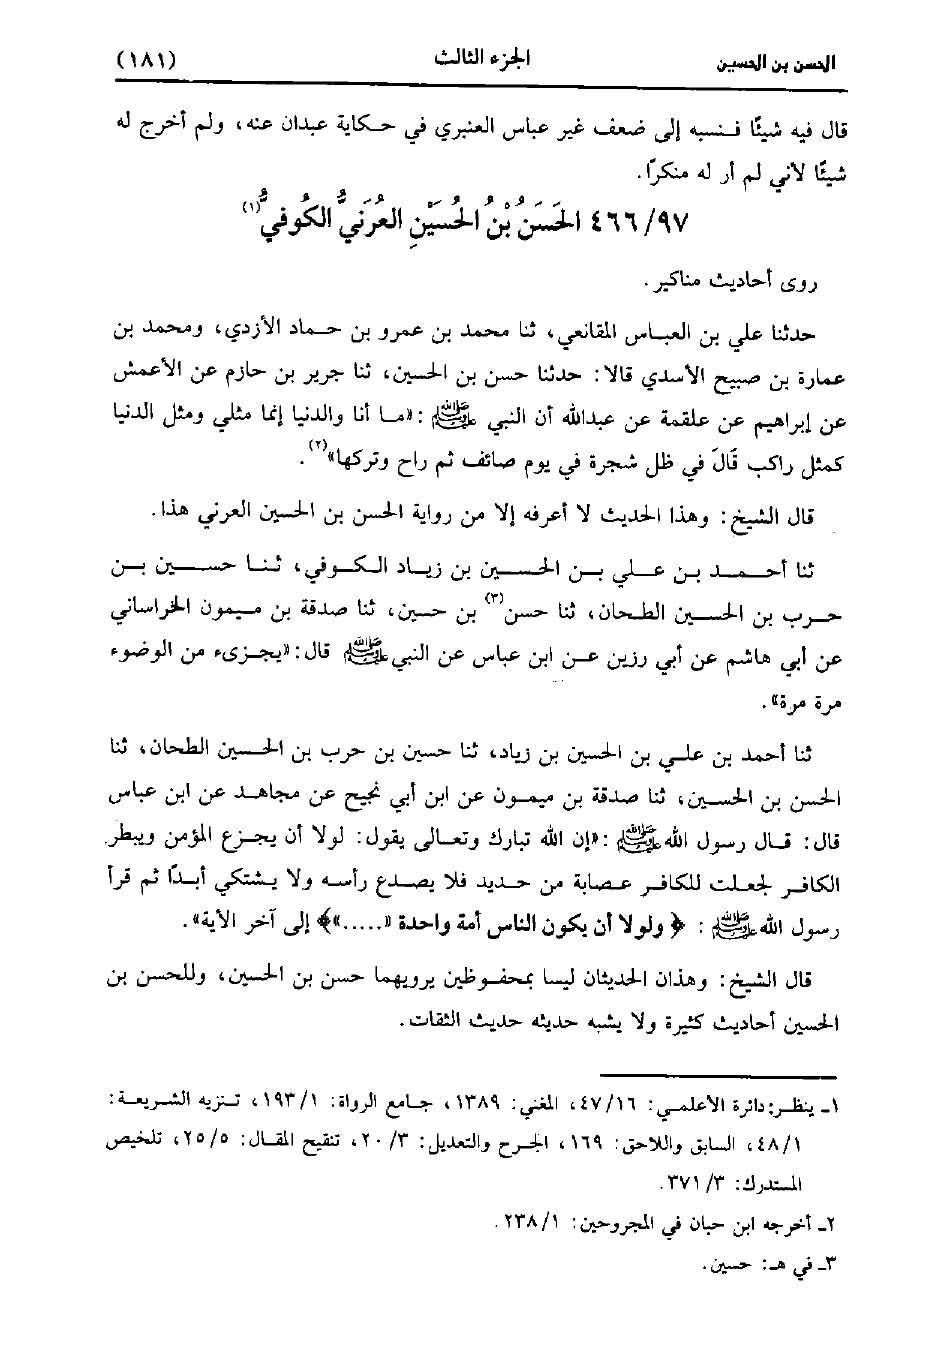 الحسن بن الحسين الجزء الثالث (١٨١)
قال فيه شيئًا فنسبه إلى ضعف غير عباس العنبري في حكاية عبدان عنه، ولم أخرج له
شيئًا لأني لم أر له منكرًا.
٤٦٦/٩٧ الحَسَنُ بْنُ الحُسَيْنِ العُرَنيُّ الكُوفيُّ(١)
روى أحاديث مناكير.
حدثنا علي بن العباس المقانعي، ثنا محمد بن عمرو بن حماد الأزدي، ومحمد بن
عمارة بن صبيح الأسدي قالا: حدثنا حسن بن الحسين، ثنا جرير بن حازم عن الأعمش
عن إبراهيم عن علقمة عن عبدالله أن النبي ﷺ: «ما أنا والدنيا إنما مثلي ومثل الدنيا
كمثل راكب قَالَ في ظل شجرة في يوم صائف ثم راح وتركها»(٢).
قال الشيخ: وهذا الحديث لا أعرفه إلا من رواية الحسن بن الحسين العرني هذا.
ثنا أحمد بن علي بن الحسين بن زياد الكوفي، ثنا حسين بن
حرب بن الحسين الطحان، ثنا حسن(٣) بن حسين، ثنا صدقة بن ميمون الخراساني
عن أبي هاشم عن أبي رزين عن ابن عباس عن النبي ﷺ قال: «يجزىء من الوضوء
مرة مرة».
ثنا أحمد بن علي بن الحسين بن زياد، ثنا حسين بن حرب بن الحسين الطحان، ثنا
الحسن بن الحسين، ثنا صدقة بن ميمون عن ابن أبي نجيح عن مجاهد عن ابن عباس
قال: قال رسول الله ﷺ: «إن الله تبارك وتعالى يقول: لولا أن يجزع المؤمن ويبطر
الكافر لجعلت للكافر عصابة من حديد فلا يصدع رأسه ولا يشتكي أبدًا ثم قرأ
رسول الله ﷺ: ﴿ولولا أن يكون الناس أمة واحدة «.....»﴾ إلى آخر الآية».
قال الشيخ: وهذان الحديثان ليسا بمحفوظين يرويهما حسن بن الحسين، وللحسن بن
الحسين أحاديث كثيرة ولا يشبه حديثه حديث الثقات.
١ـ ينظر: دائرة الأعلمي: ٤٧/١٦، المغني: ١٣٨٩، جامع الرواة: ١٩٣/١، تنزيه الشريعة:
٤٨/١، السابق واللاحق: ١٦٩، الجرح والتعديل: ٢٠/٣، تنقيح المقال: ٢٥/٥، تلخيص
المستدرك: ٣٧١/٣.
٢ـ أخرجه ابن حبان في المجروحين: ٢٣٨/١.
٣ـ في هـ: حسين.